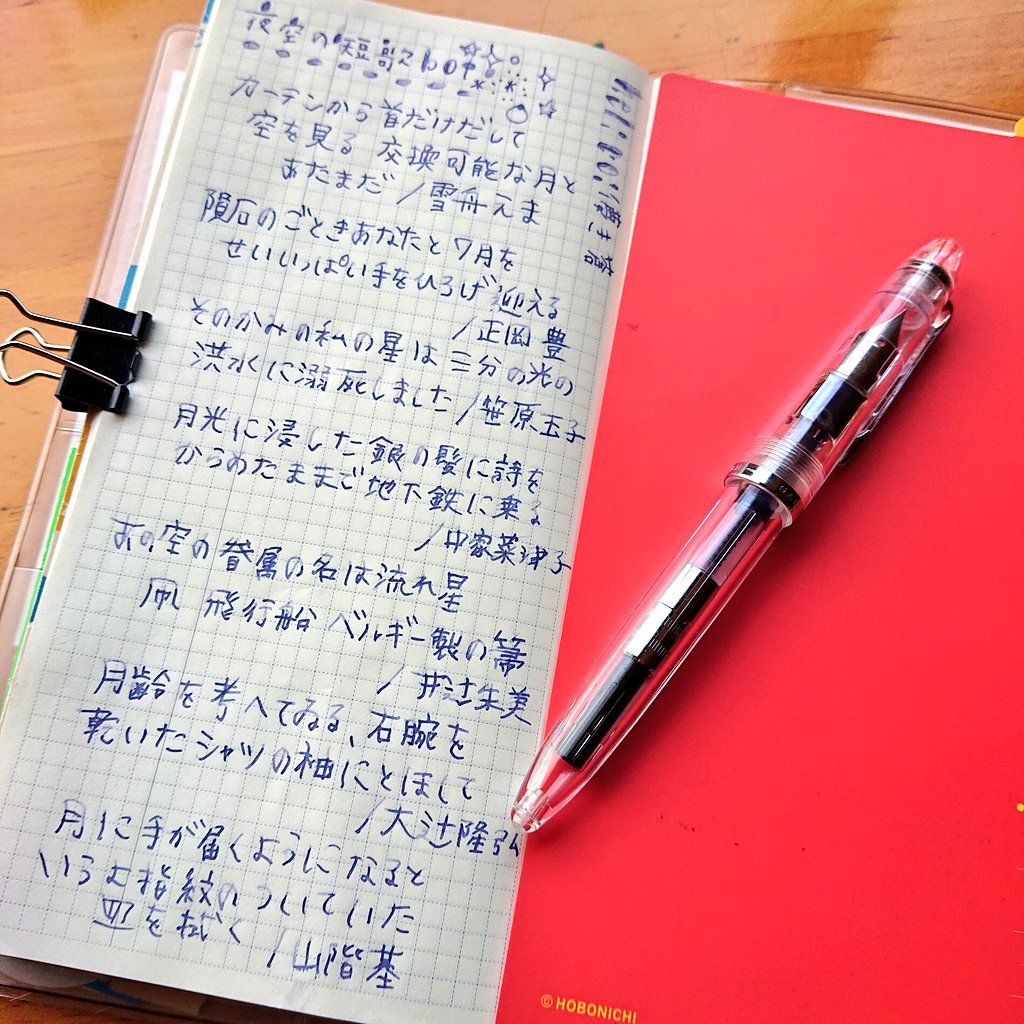 夜空の短歌bot
カーテンから首だけだして
空を見る 交換可能な月と
あたまだ /雪舟えま
隕石のごときあなたと7月を
せいいっぱい手をひろげ迎える
/正岡豊
そのかみの私の星は三分の光の
洪水に溺死しました/笹原玉子
月光に浸した銀の髪に詩を
からめたままご地下鉄に乗る
/中家菜津子
あの空の眷属の名は流れ星
凧 飛行船 ベルギー製の箒
/井辻朱美
月齢を考へてゐる、右腕を
乾いたシャツの袖にとほして
/大辻隆弘
月に手が届くようになると
いろんな指紋のついていた
皿を拭く /山階基
© HOBONICHI